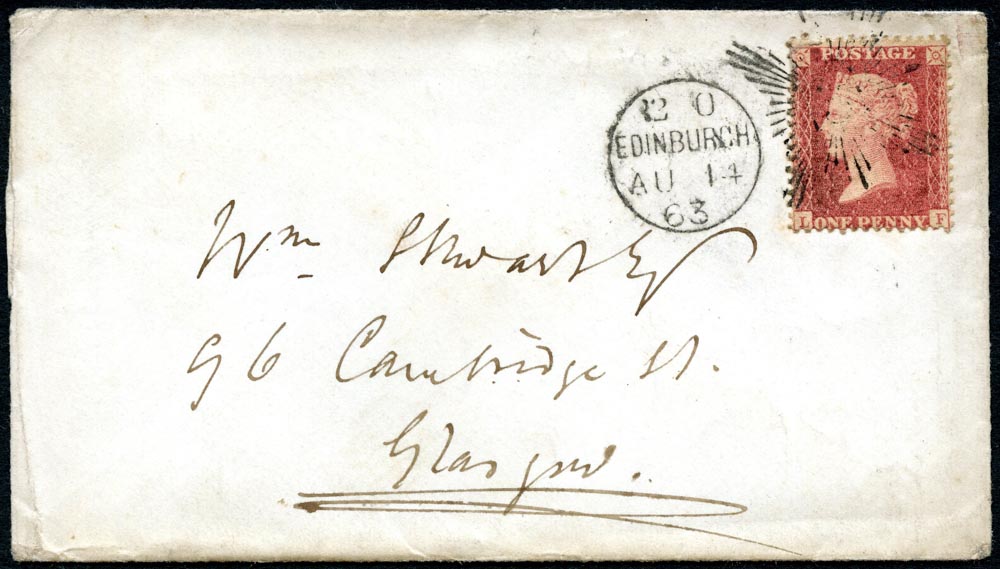 POSTAGE
ONE PENNY
L F
20
EDINBURGH
AU 14
63
Wm Stewart Esq
96 Cambridge St.
Glasgow.